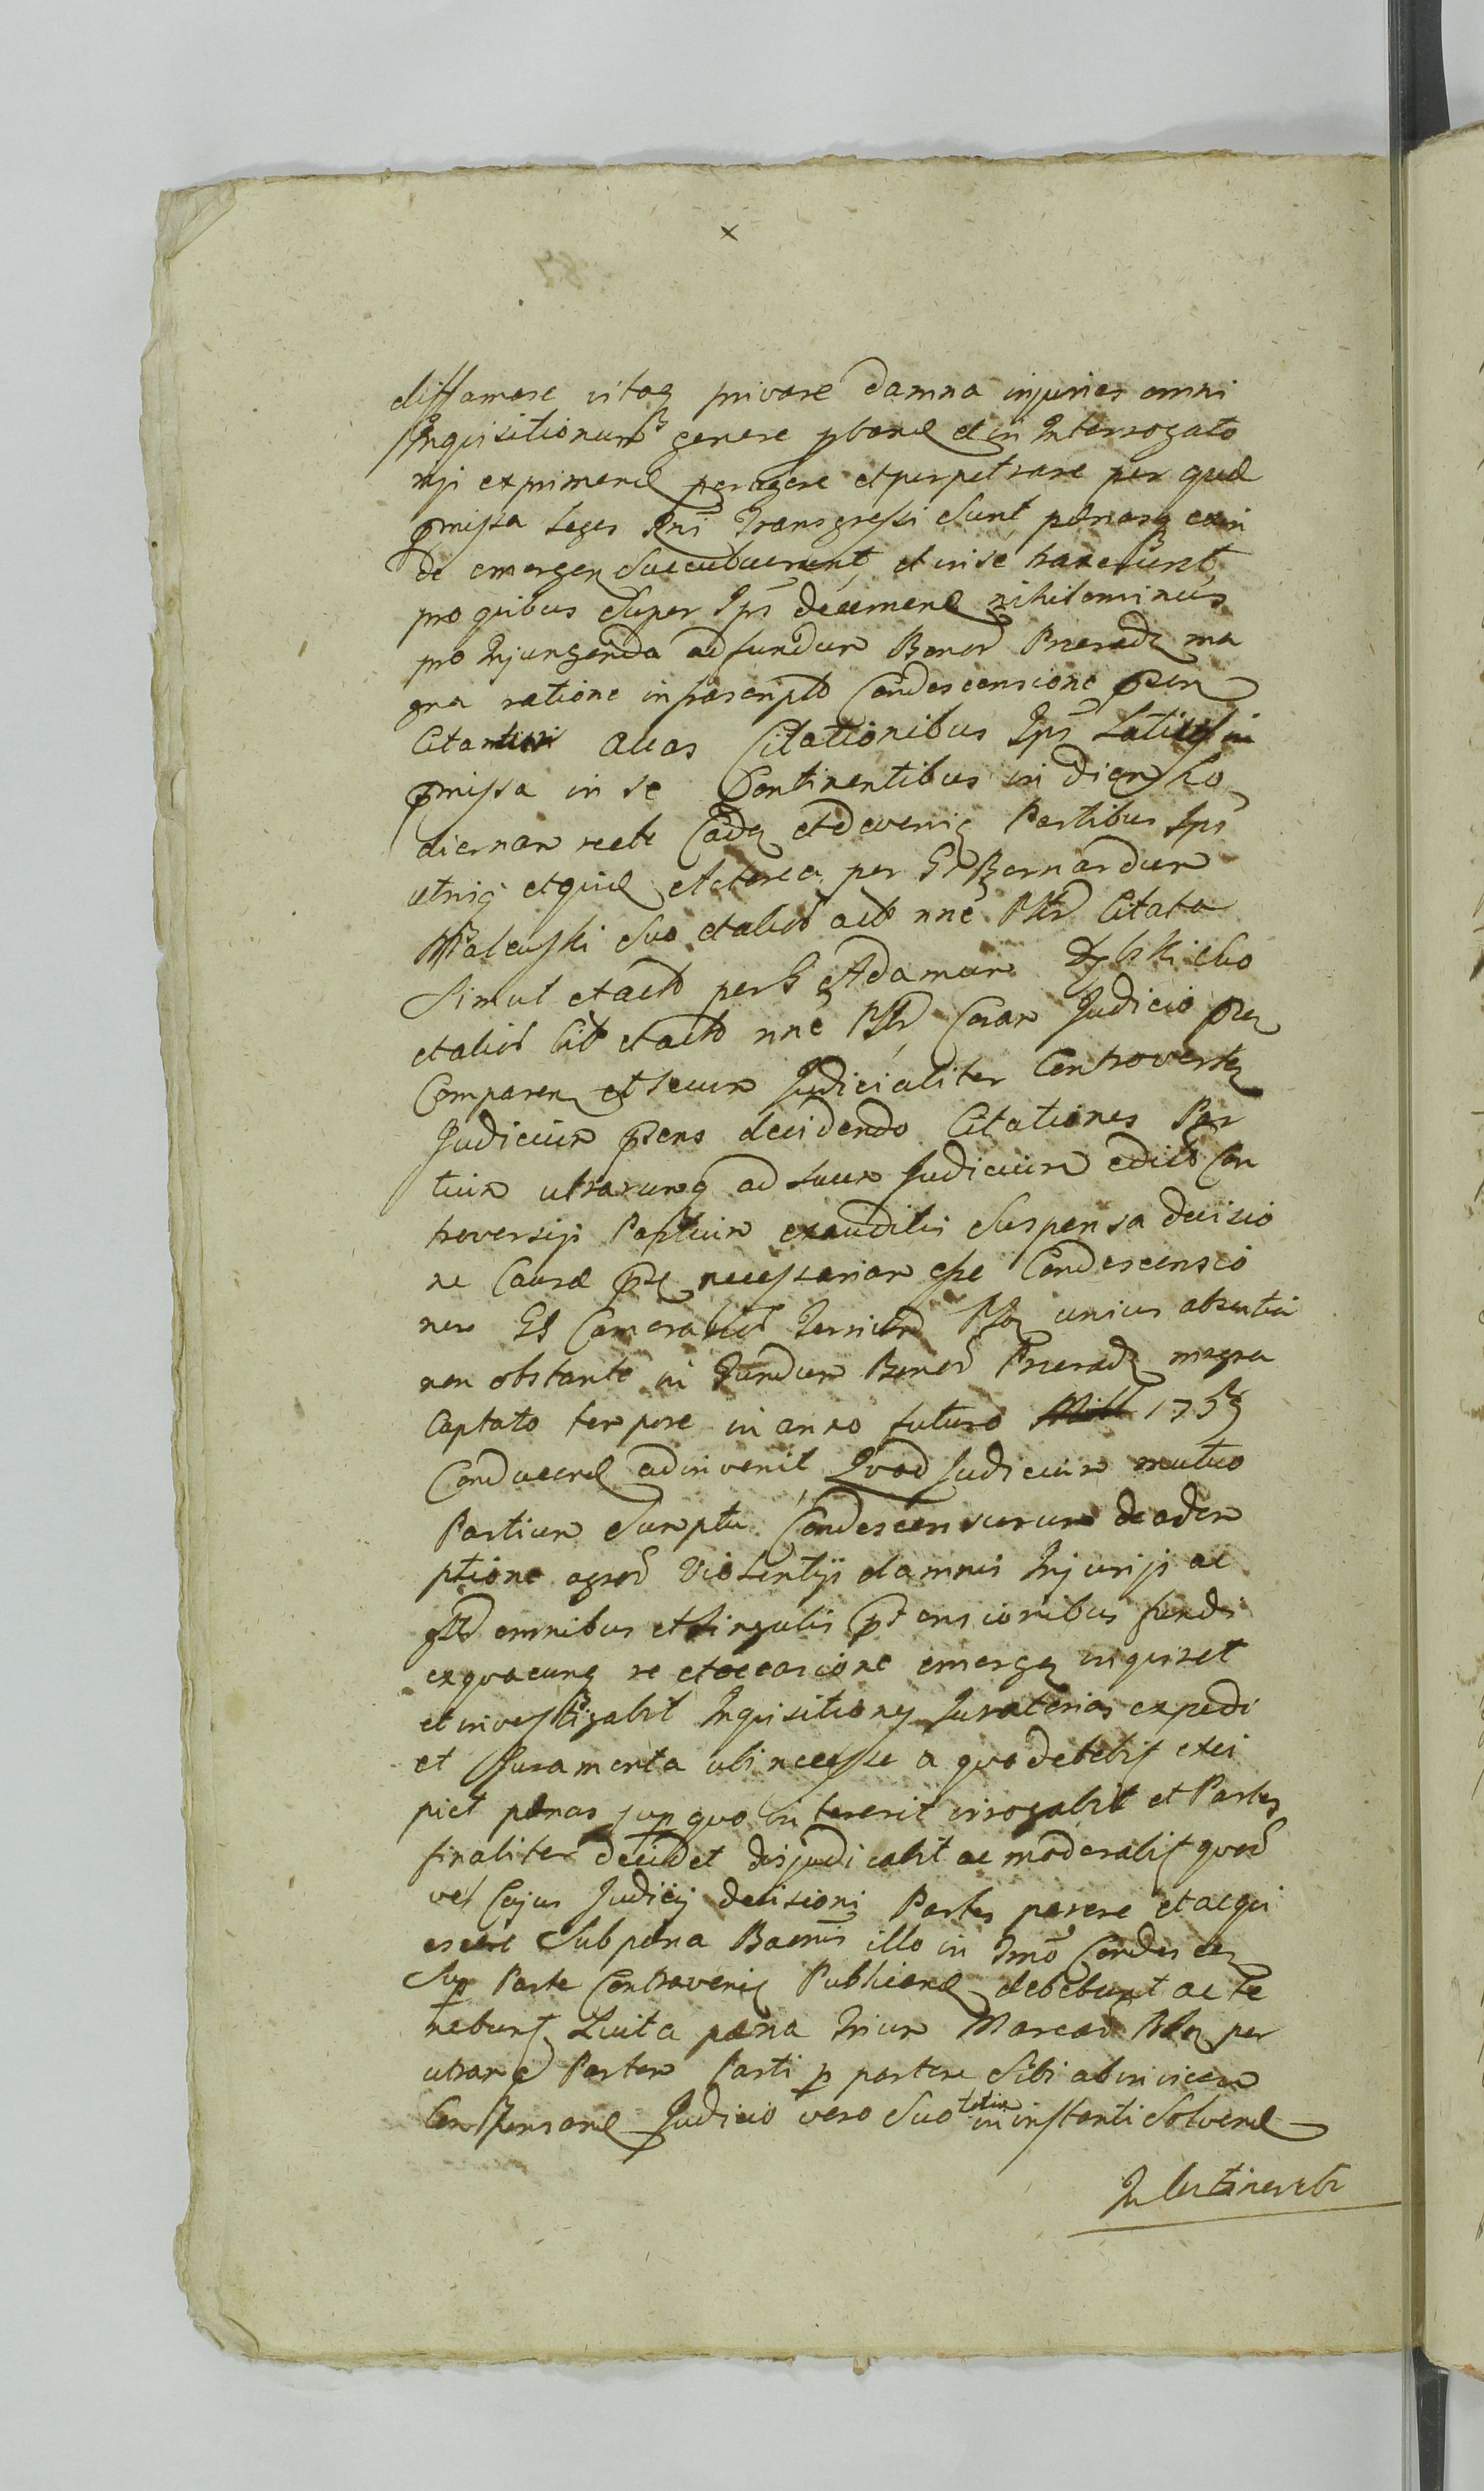 x
diffamare vitaq privare damna injurias omni
Inquisitionum genere pband et in Interrogato
rijs exprimend peragere et perpetrare per quæ
pmissa Leges Rni Transgressi Sunt pænasq exin
de emergen Succubuerunt et in se traxerunt
pro quibus Super Ips decernend nihilominus
pro Injungenda ad fundum Bonor Przeradz ma
gna ratione infrascripto Condescensione pr
Citantem alias Citationibus Ips Latis
pmissa in se Continentibus in diem ho
diernam recte Cadeñ et deveniñ Partibus Ips
utrisq et quid Actorea per G Bernardum
Malewski Suo et alior acto nne Pltr Citata
Simul et acto per G Adamum Suo
et alior Cit et acto nne Pltr Coram Judicio
Comparen et secum Judicialiter Controverten
Judicium pñs decidendo Citationes Par
tium utrarumq ad suum Judicium edito Con
troversijs Partium exauditis Suspensa decisio
ne Causæ necessariam esse Condescensio
nem Gd Camerarior Terrior unius absentia
non obstante in fundum Bonor Przeradz magna
Captato tempore in anno futuro 175
Conducend adinvenit Quod Judicium mutuo
Partium Sumptu Condescensurum de adem
ptione agror Violentijs damnis Injurijs ac
omnibus et Singulis ptensionibus fundi
ex quacunq re et occasione emergen inquiret
et investigabit Inquisitiones Juratorias expedi
et Juramenta ubi necesse a quo debebit exci
piet pænas sup quo in tererit irrogabit et Partes
finaliter decidet disjudicabit ac moderabit quod
vel Cujus Judicij decisioni Partes parere et acqui
escere Sub pæna Bannis illo in Tmo Condescen
Sup Parte Contraveniñ Publicand debebunt ac te
nebunt Luita pæna trium Marcar per
utramq Partem Parti p partem Sibi ab invicem
Compensand Judicio vero Suo totim in instanti Solvend